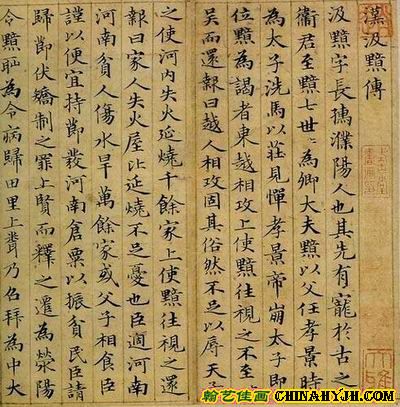 漢汲黯傳
汲黯字長孺濮陽人也其先有寵於古之
衞君至黯七世〻為卿大夫黯以父任孝景時
為太子洗馬以莊見憚孝景帝崩太子即
位黯為謁者東越相攻上使黯往視之不至
吳而還報曰越人相攻固其俗然不足以辱天子
之使河內失火延燒千餘家上使黯往視之還
報曰家人失火屋比延燒不足憂也臣適河南
河南貧人傷水旱萬餘家或父子相食臣
謹以便宜持節發河南倉粟以振貧民臣請
歸節伏矯制之罪上賢而釋之遷為滎陽
令黯恥為令病歸田里上聞乃召拜為中大
翰艺佳画
CHINAHYJH.COM